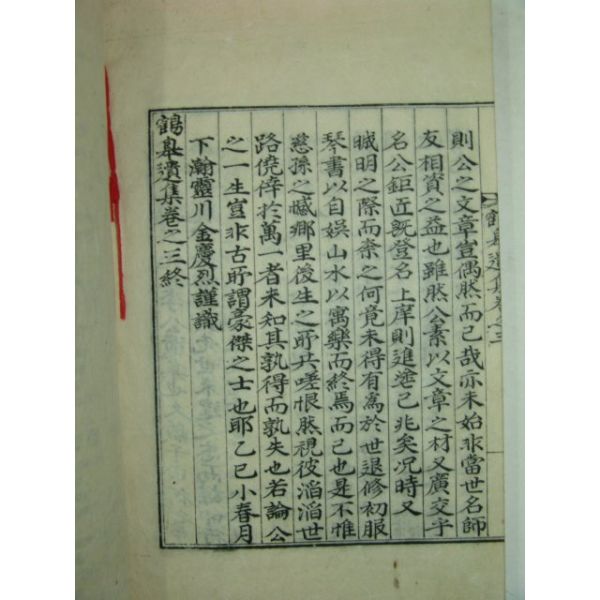 則公之文章豈偶然而已哉亦未始非當世名師
友相資之益也雖然公素以文章之材又廣交乎
名公鉅匠旣登名上庠則進塗已兆矣况時又
晠明之際而柰之何竟未得有爲於世退修初服
琴書以自娛山水以寓樂而終焉而已也是不惟
慈孫之憾鄉里後生之所共嗟恨然視彼滔滔世
路僥倖於萬一者未知其孰得而孰失也若論公
之一生豈非古所謂豪傑之士也耶乙巳小春月
下澣靈川金慶烈謹識
鶴臯遺集卷之三終
鶴臯遺集卷之三